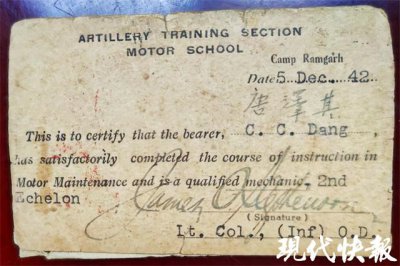 ARTILLERY TRAINING SECTION
MOTOR SCHOOL
Camp Ramgarh
Date 5 Dec. 42
唐澤其
This is to certify that the bearer, C. C. Dang ,
has satisfactorily completed the course of instruction in
Motor Maintenance and is a qualified mechanic. 2nd
Echelon
James Stephenson
(Signature)
Lt. Col., (Inf) O.D.
现代快报